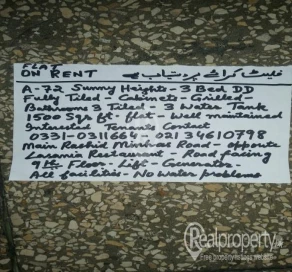 FLAT
ON RENT فلیٹ کرائے پر دستیاب ہے
A-72 Sunny Heights - 3 Bed DD
Fully Tiled - Cabinets - Grilled -
Bathrooms 3 Tiled - 3 Water Tank
1500 Sqr ft - flat - Well maintained
Intrested Tenants Contact
0331-0316614 - 021 34610798
Main Rashid Minhas Road - opposite
Lasania Restaurent - Road facing
9th Floor - Lift - Generator -
All facilities - No Water problems
Realproperty.pk
Free property listings website